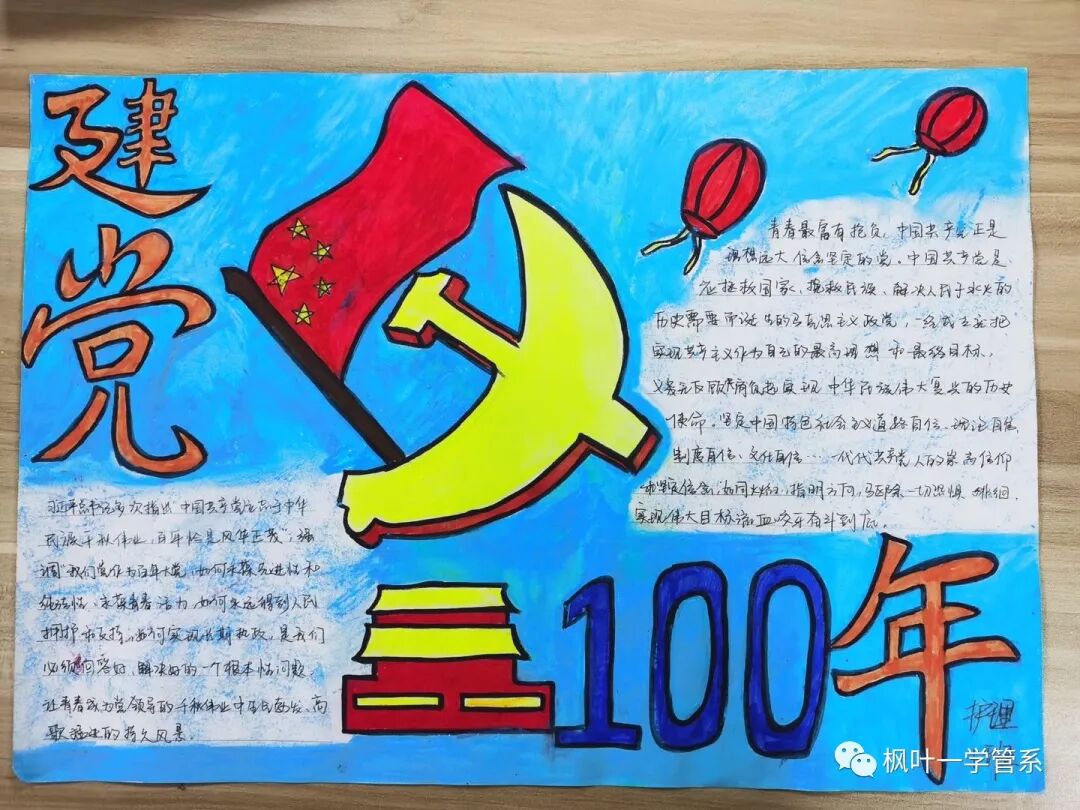 建党
青春最富有抱负，中国共产党正是
理想远大信念坚定的党。中国共产党是
在拯救国家、挽救民族、解决人民于水火的
历史需要而诞生的马克思主义政党，一经成立就把
实现共产主义作为自己的最高理想和最终目标，
义无反顾肩负起实现中华民族伟大复兴的历史
使命。坚定中国特色社会主义道路自信、理论自信
制度自信、文化自信⋯一代代共产党人的崇高信仰
和坚定信念，如同火炬，指明方向，驱除一切恐惧、徘徊
实现伟大目标 浴血 奋斗到底。
习近平总书记多次指出"中国共产党立志于中华
民族千秋伟业，百年恰是风华正茂"，强
调"我们党作为百年大党，如何永葆先进性和
纯洁性、永葆青春活力，如何永远得到人民
拥护和支持，如何实现长期执政，是我们
必须回答好、解决好的一个根本性问题。
让青春成为党领导的千秋伟业中 高
歌 的持久风景。
100年
护理
枫叶一学管系